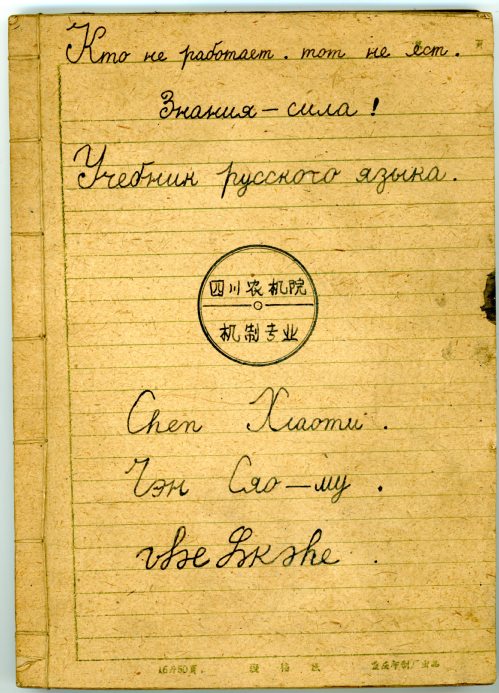 Кто не работает. тот не ест.
Знания – сила!
Учебник русского языка.
四川农机院
机制专业
Chen Xiaomu.
Чэн Сяо–му.
16开50頁.